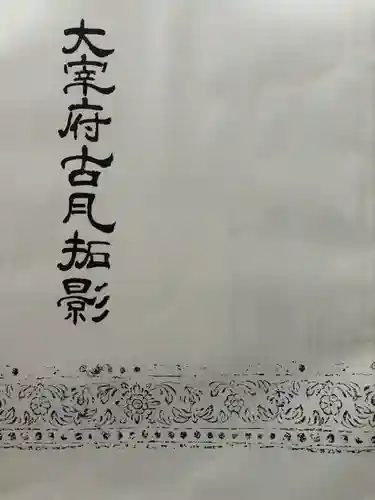 大宰府古瓦拓影